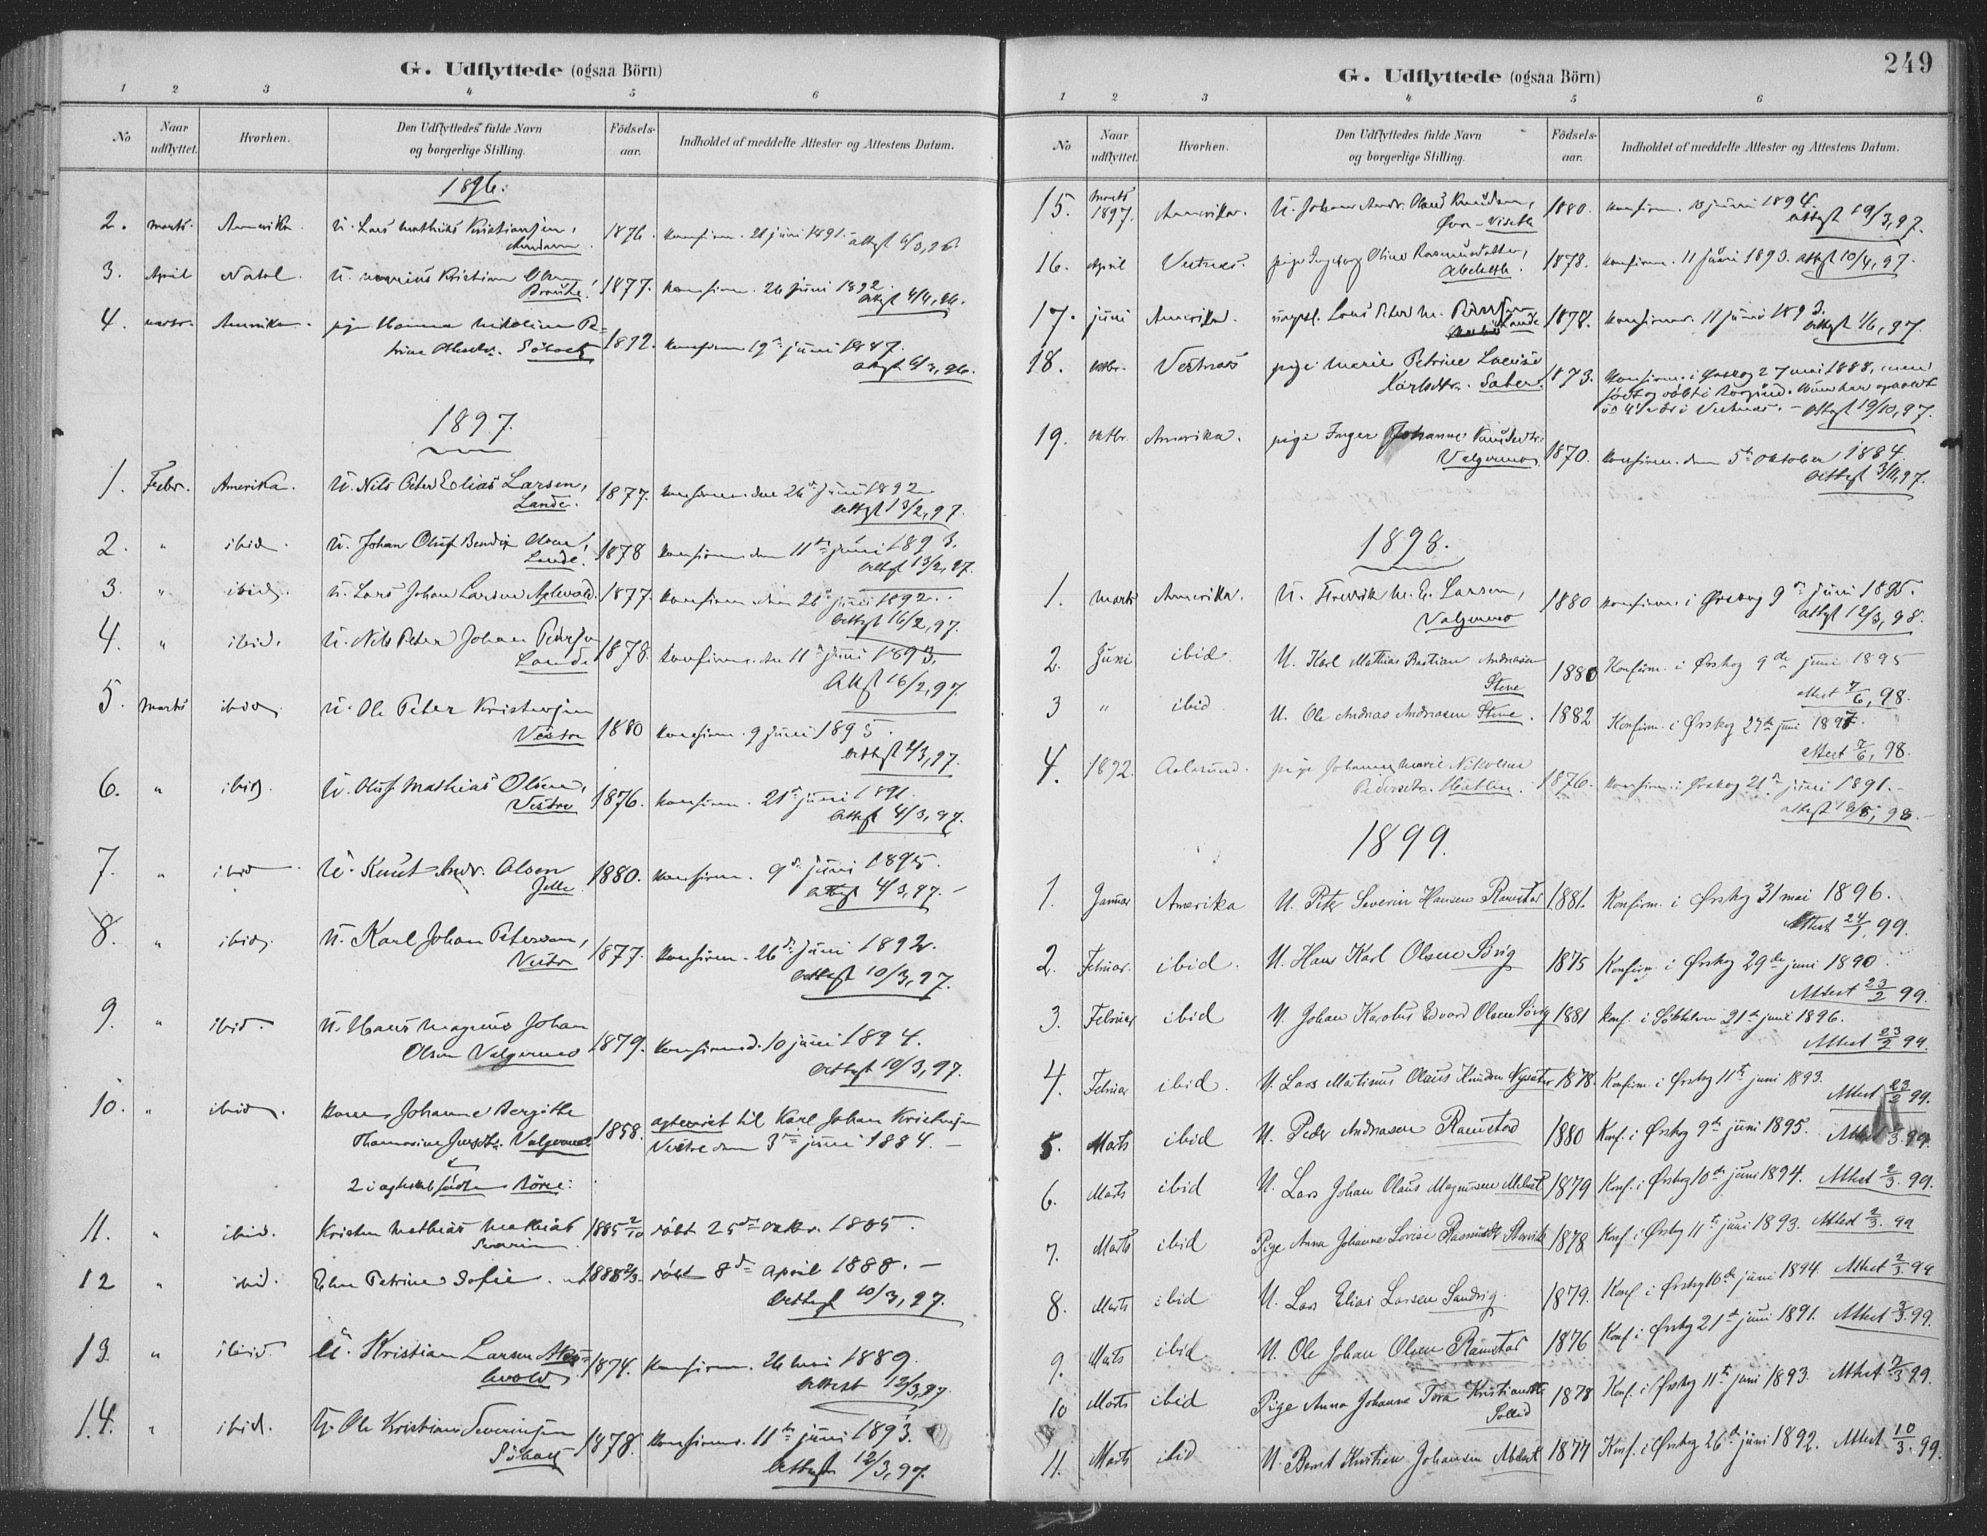 G. Udflyttede (ogsaa Börn)
1 2 3 4 5 6
No Naar udflyttet. Hvorhen. Den Udflyttedes fulde Navn og borgerlige Stilling. Födsels-aar. Indholdet af meddelte Attester og Attestens Datum.
1896.
2. marts. Amerika U. Lars Mathias Kristiansen, 1876. konfirm. 21 juni 1891. attest 6/3, 96.
3. April Natal. U. Kristian 1877. konfirm. 26 juni 1892.
attest 4/4, 96.
4. Amerika. pige Hanna Nikoline Pe-
trine 1872. konfirm 19de juni 1887.
1897.
1. Febr. Amerika. U. Nils Peter Elias Larsen, 1877. konfirm. den 26de juni 1892.
Lande. attest 13/2, 97.
2. " ibid. U. Johan Oluf Bendix Olsen, 1878 konfirm. den 11te juni 1893.
Lande. attest 13/2, 97.
3. " ibid. U. Lars Johan Larsen Apelvold. 1877. konfirm. den 26de juni 1892.
attest 16/2, 97.
4. " ibid. U. Nils Peter Johan 1878. konfirm. den 11te juni 1893.
Lande Attest 16/2, 97.
5. Marts ibid. U. Ole Peter Kristensen
Vestre 1880 konfirm. 9 juni 1895.
attest 2/3, 97.
6. " ibid. U. Oluf Mathias Olsen,
Vestre 1876. konfirm. 21de juni 1891.
attest 4/3, 97.
7. " ibid U. Knut Andr. Olsen 1880. konfirm. 9de juni 1895.
attest 4/3, 97.
8. " ibid. U. Karl Johan Petersen, 1877. konfirm. 26de juni 1892.
Vestre attest 10/3, 97.
9. " ibid. U. Hans Magnus Johan
Olsen Valgermo 1879. konfirmed. 10 juni 1894.
attest 10/3, 97.
10. " ibid. kone Johanne Bergitte 1858. ægteviet til Karl Johan Kristensen
Valgermo Vestre den 3die juni 1884.
2 i ægteskab fødte Børn:
11. " ibid. Kristen Mathias Mathias
Severin. 1885 2/10 døbt 25de oktbr. 1885.
12 " ibid. Petrine Sofie. 1888 2/3. døbt 8de april 1888.
Attest 10/3, 97.
13. " ibid. U. Kristian Larsen 1874. konfirm. 26 mai 1889.
Attest 12/3, 97.
14. " ibid. U. Ole Kristian Severinsen 1878. konfirm. 11te juni 1893.
Attest 12/3, 97.
249
G. Udflyttede (ogsaa Börn)
1 2 3 4 5 6
No Naar udflyttet. Hvorhen. Den Udflyttedes fulde Navn og borgerlige Stilling. Födsels-aar. Indholdet af meddelte Attester og Attestens Datum.
15. Marts 1897. Amerika. U. Johan Andr. Olaus Knudsen, 1880. konfirm. 10 juni 1894.
Øvre - Viset attest 19/3, 97.
16. April Vestnes. pige Ingeborg Oline Rasmusdatter, 1878. konfirm. 11 juni 1893. attest 10/4, 97.
17. juni Amerika. ungkl. Lars Peter M. 1878. konfirm. 11 juni 1893.
Lande attest 1/6, 97.
18. oktbr. Vestnes pige Marie Petrine Lovise
Karlsdtr. 1873. konfirm. i Ørskog 27 mai 1888, men
født og døbt i
Vestnes. - attest 19/10, 97.
19. oktbr. Amerika. pige Inger Johanne Knudsdtr.
Valgermo 1870. konfirm. den 5te oktober 1884.
Attest 3/11, 97.
1898.
1. Marts Amerika. U. Fredrik M. E. Larsen,
Valgermo 1880 konfirm. i Ørskog 9de juni 1895.
attest 12/3, 98.
2. Juni ibid U. Karl Mathias Bastian Andreasen
Stene 1880 Konfirm. i Ørskog 9de juni 1895
Attest 7/6, 98.
3 " ibid U. Ole Andreas Andreasen Stene. 1882 Konfirm. i Ørskog 27de juni 1897.
Attest 7/6, 98.
4. 1892. Aalesund. pige Johanne Marie Nikoline
Pedersdtr. 1876. konfirm. i Ørskog 21de juni 1891.
1899.
1. Januar Amerika U. Peter Severin Hansen Ramstad 1881. Konfirm. i Ørskog 31 mai 1896.
Attest 24/1 99.
2. Februar. ibid. U. Hans Karl Olsen Søvig 1875 Konfirm. i Ørskog 29de juni 1890.
Attest 23/2 99.
3. Februar ibid U. Johan Karolus Edvard Olsen Søvig 1881 Konf. i Søkkelven 21de juni 1896.
Attest 23/2 99.
4. Februar ibid. U. Lars Martinus Olaus Knudsen Nysæter 1878 Konfirm. i Ørskog 11te juni 1893.
Attest 23/2 99.
5. Marts ibid U. Peder Andreasen Ramstad 1880 Konf. i Ørskog 9de juni 1895. Attest 2/3 99.
6. Marts ibid U. Lars Johan Olaus Magnusen 1879 Konf. i Ørskog 10de juni 1894. Attest 2/3. 99.
7. Marts ibid Pige Anna Johanne Lovise Rasmusdtr. 1878 Konf. i Ørskog 11te juni 1893. Attest 2/3. 99
8. Marts ibid U. Lars Elias Larsen Sandvig. 1879. Konf. i Ørskog 10de juni 1894. Attest 2/3. 99
9. Marts ibid U. Ole Johan Olsen Ramstad 1876 Konf. i Ørskog 21de juni 1891. Attest 2/3. 99.
10 Marts ibid Pige Anna Johanne Tora Kristiansdtr. 1878 Konf. i Ørskog 11te juni 1893. Attest 2/3 99.
11. Marts ibid U. Bernt Kristian Johansen 1877 Konf. i Ørskog 26de juni 1892. Attest 10/3. 99.